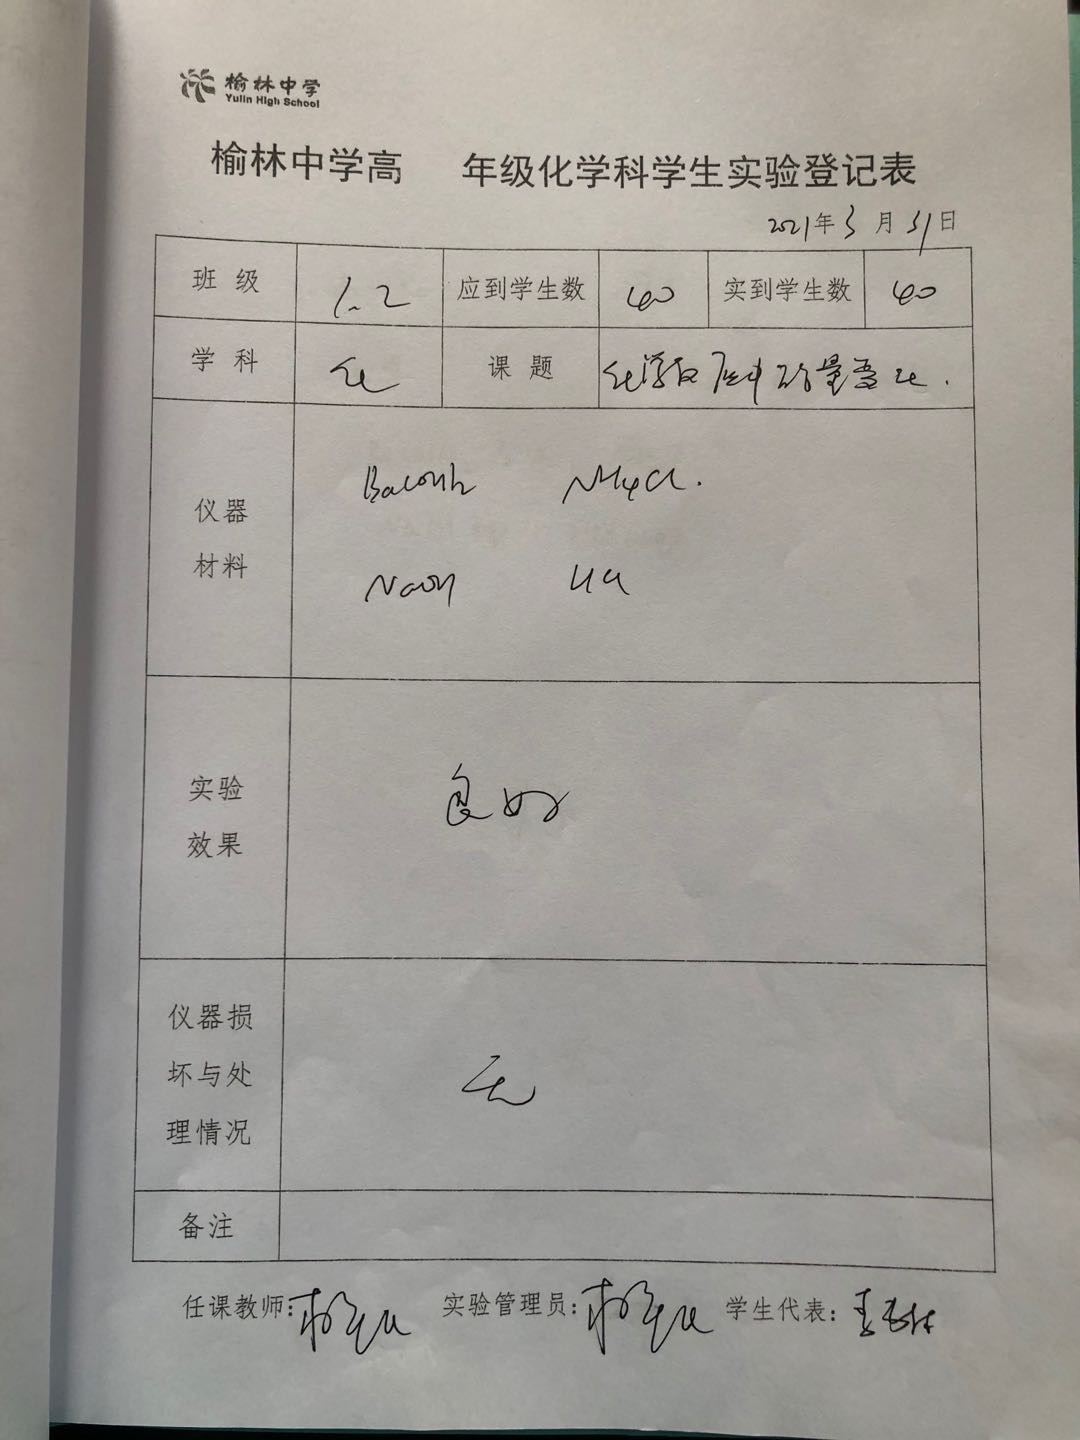 榆林中学
Yulin High School
榆林中学高 年级化学科学生实验登记表
2021年3月31日
班 级 1.2 应到学生数 40 实到学生数 40
学 科 化 课 题 化学反应中的能量变化.
仪器
材料
Ba(OH)2 NH4Cl.
NaOH HCl
实验
效果
良好
仪器损
坏与处
理情况
无
备注
任课教师: 实验管理员: 学生代表: